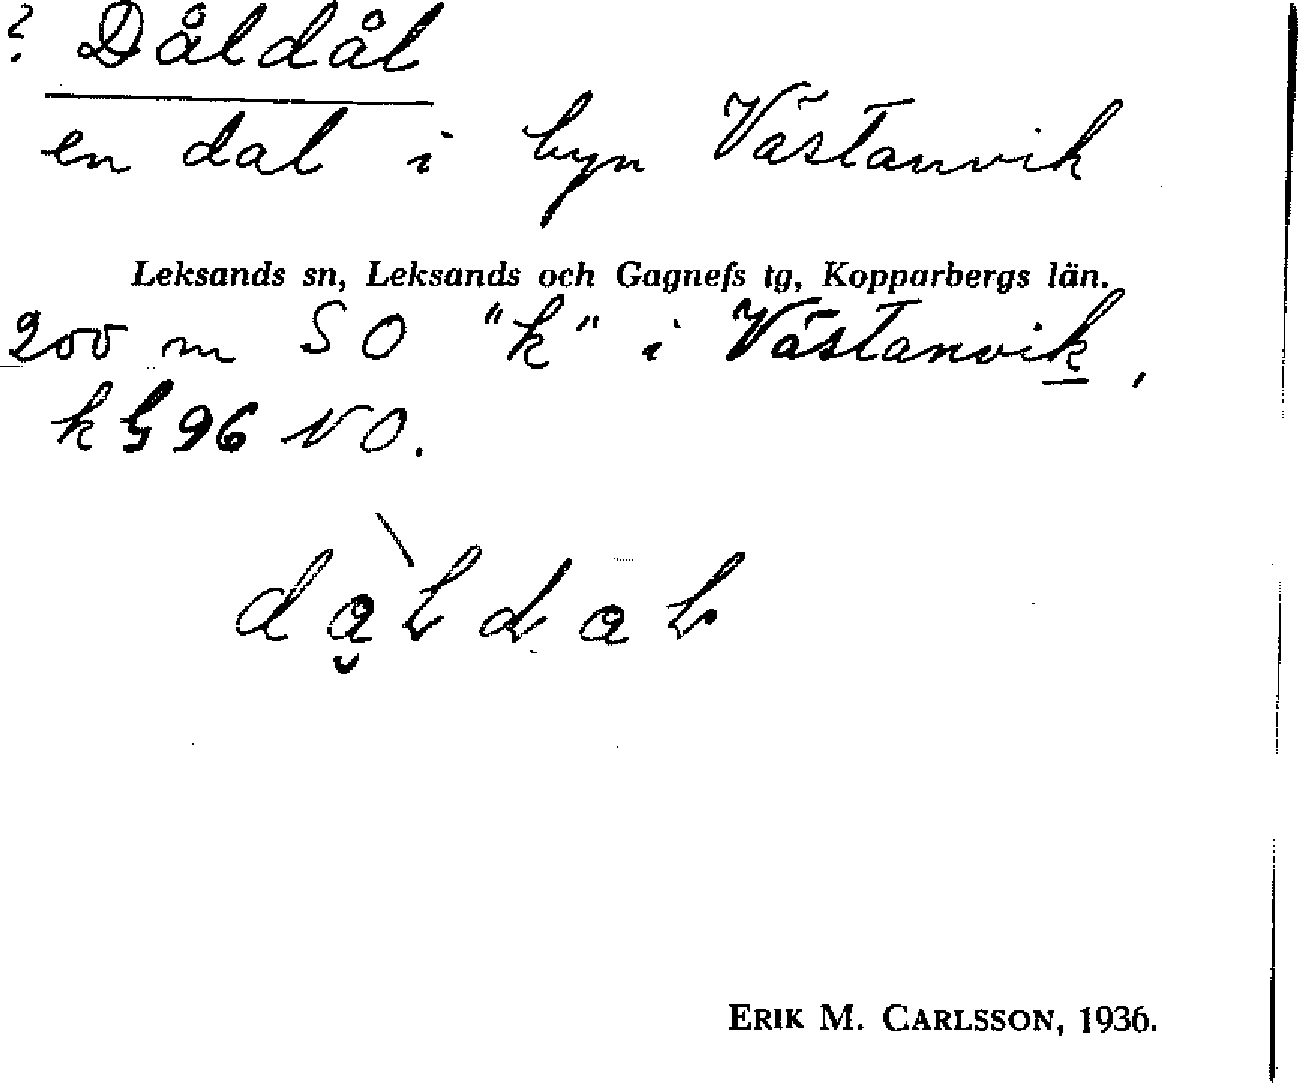 ? Dåldål
en dal i byn Västanvik
Leksands sn, Leksands och Gagnefs tg, Kopparbergs län.
200 m SO "k" i Västanvik,
k G 96 NO.
ERIK M. CARLSSON, 1936.